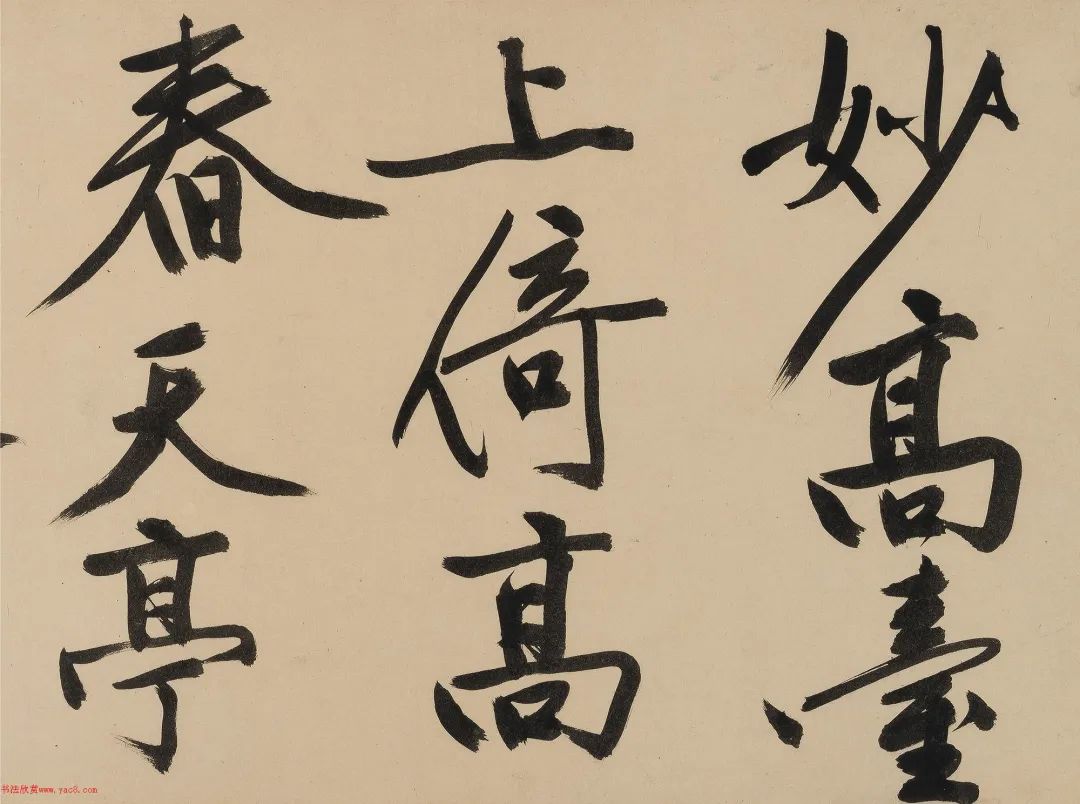 妙高臺
上倚高
春天亭
书法欣赏www.yac8.com